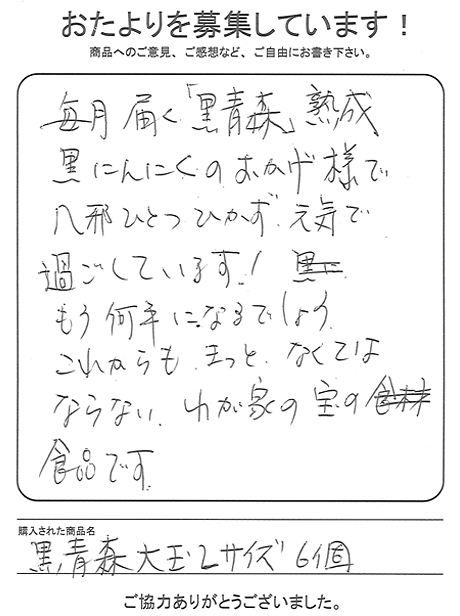 おたよりを募集しています！
商品へのご意見、ご感想など、ご自由にお書き下さい。
毎月届く「黒青森」熟成
黒にんにくのおかげ様で
八邪ひとつひかず、元気で
過ごしています！ 黒に
もう何年になるでしょう
これからも、きっと、なくては
ならない、わが家の宝の食
食品です
購入された商品名
黒青森大玉Lサイズ 6個
ご協力ありがとうございました。